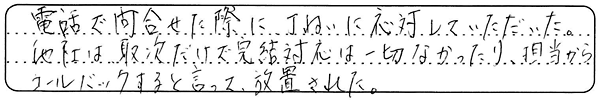 電話で問合せた際に、丁ねいに応対していただいた。
他社は取次だけで完結対応は一切なかったり、担当から
コールバックすると言って、放置された。